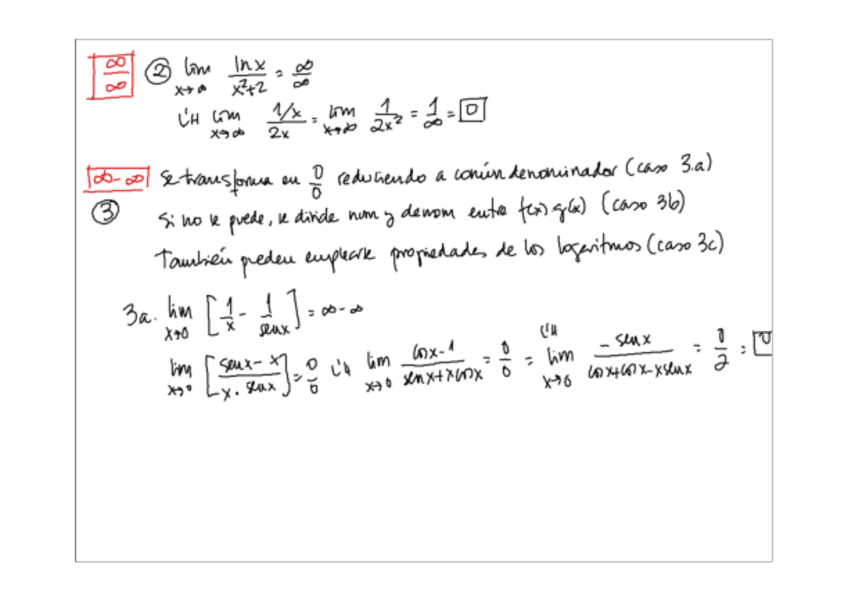 ∞/∞ ② lim x→∞ ln x / x²+2 = ∞/∞
L'H lim x→∞ 1/x / 2x = lim x→∞ 1/2x² = 1/∞ = 0
∞-∞ Se transforma en 0/0 reduciendo a común denominador (caso 3.a)
③ Si no se puede, se divide num y denom entre f(x) g(x) (caso 3b)
También pueden emplearse propiedades de los logaritmos (caso 3c)
3a. lim x→0 [1/x - 1/senx] = ∞-∞
lim x→0 [senx - x / x · senx] = 0/0 L'H lim x→0 cosx-1 / senx+xcosx = 0/0 = L'H lim x→0 -senx / cosx+cosx-xsenx = 0/2 = 0